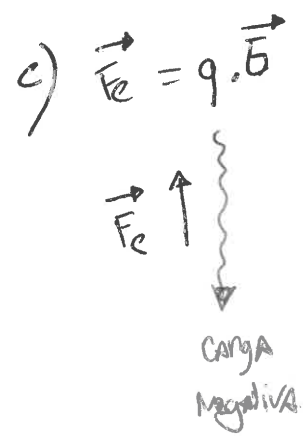 c) Fe = q.E
Fe
CARGA
NegAtivA